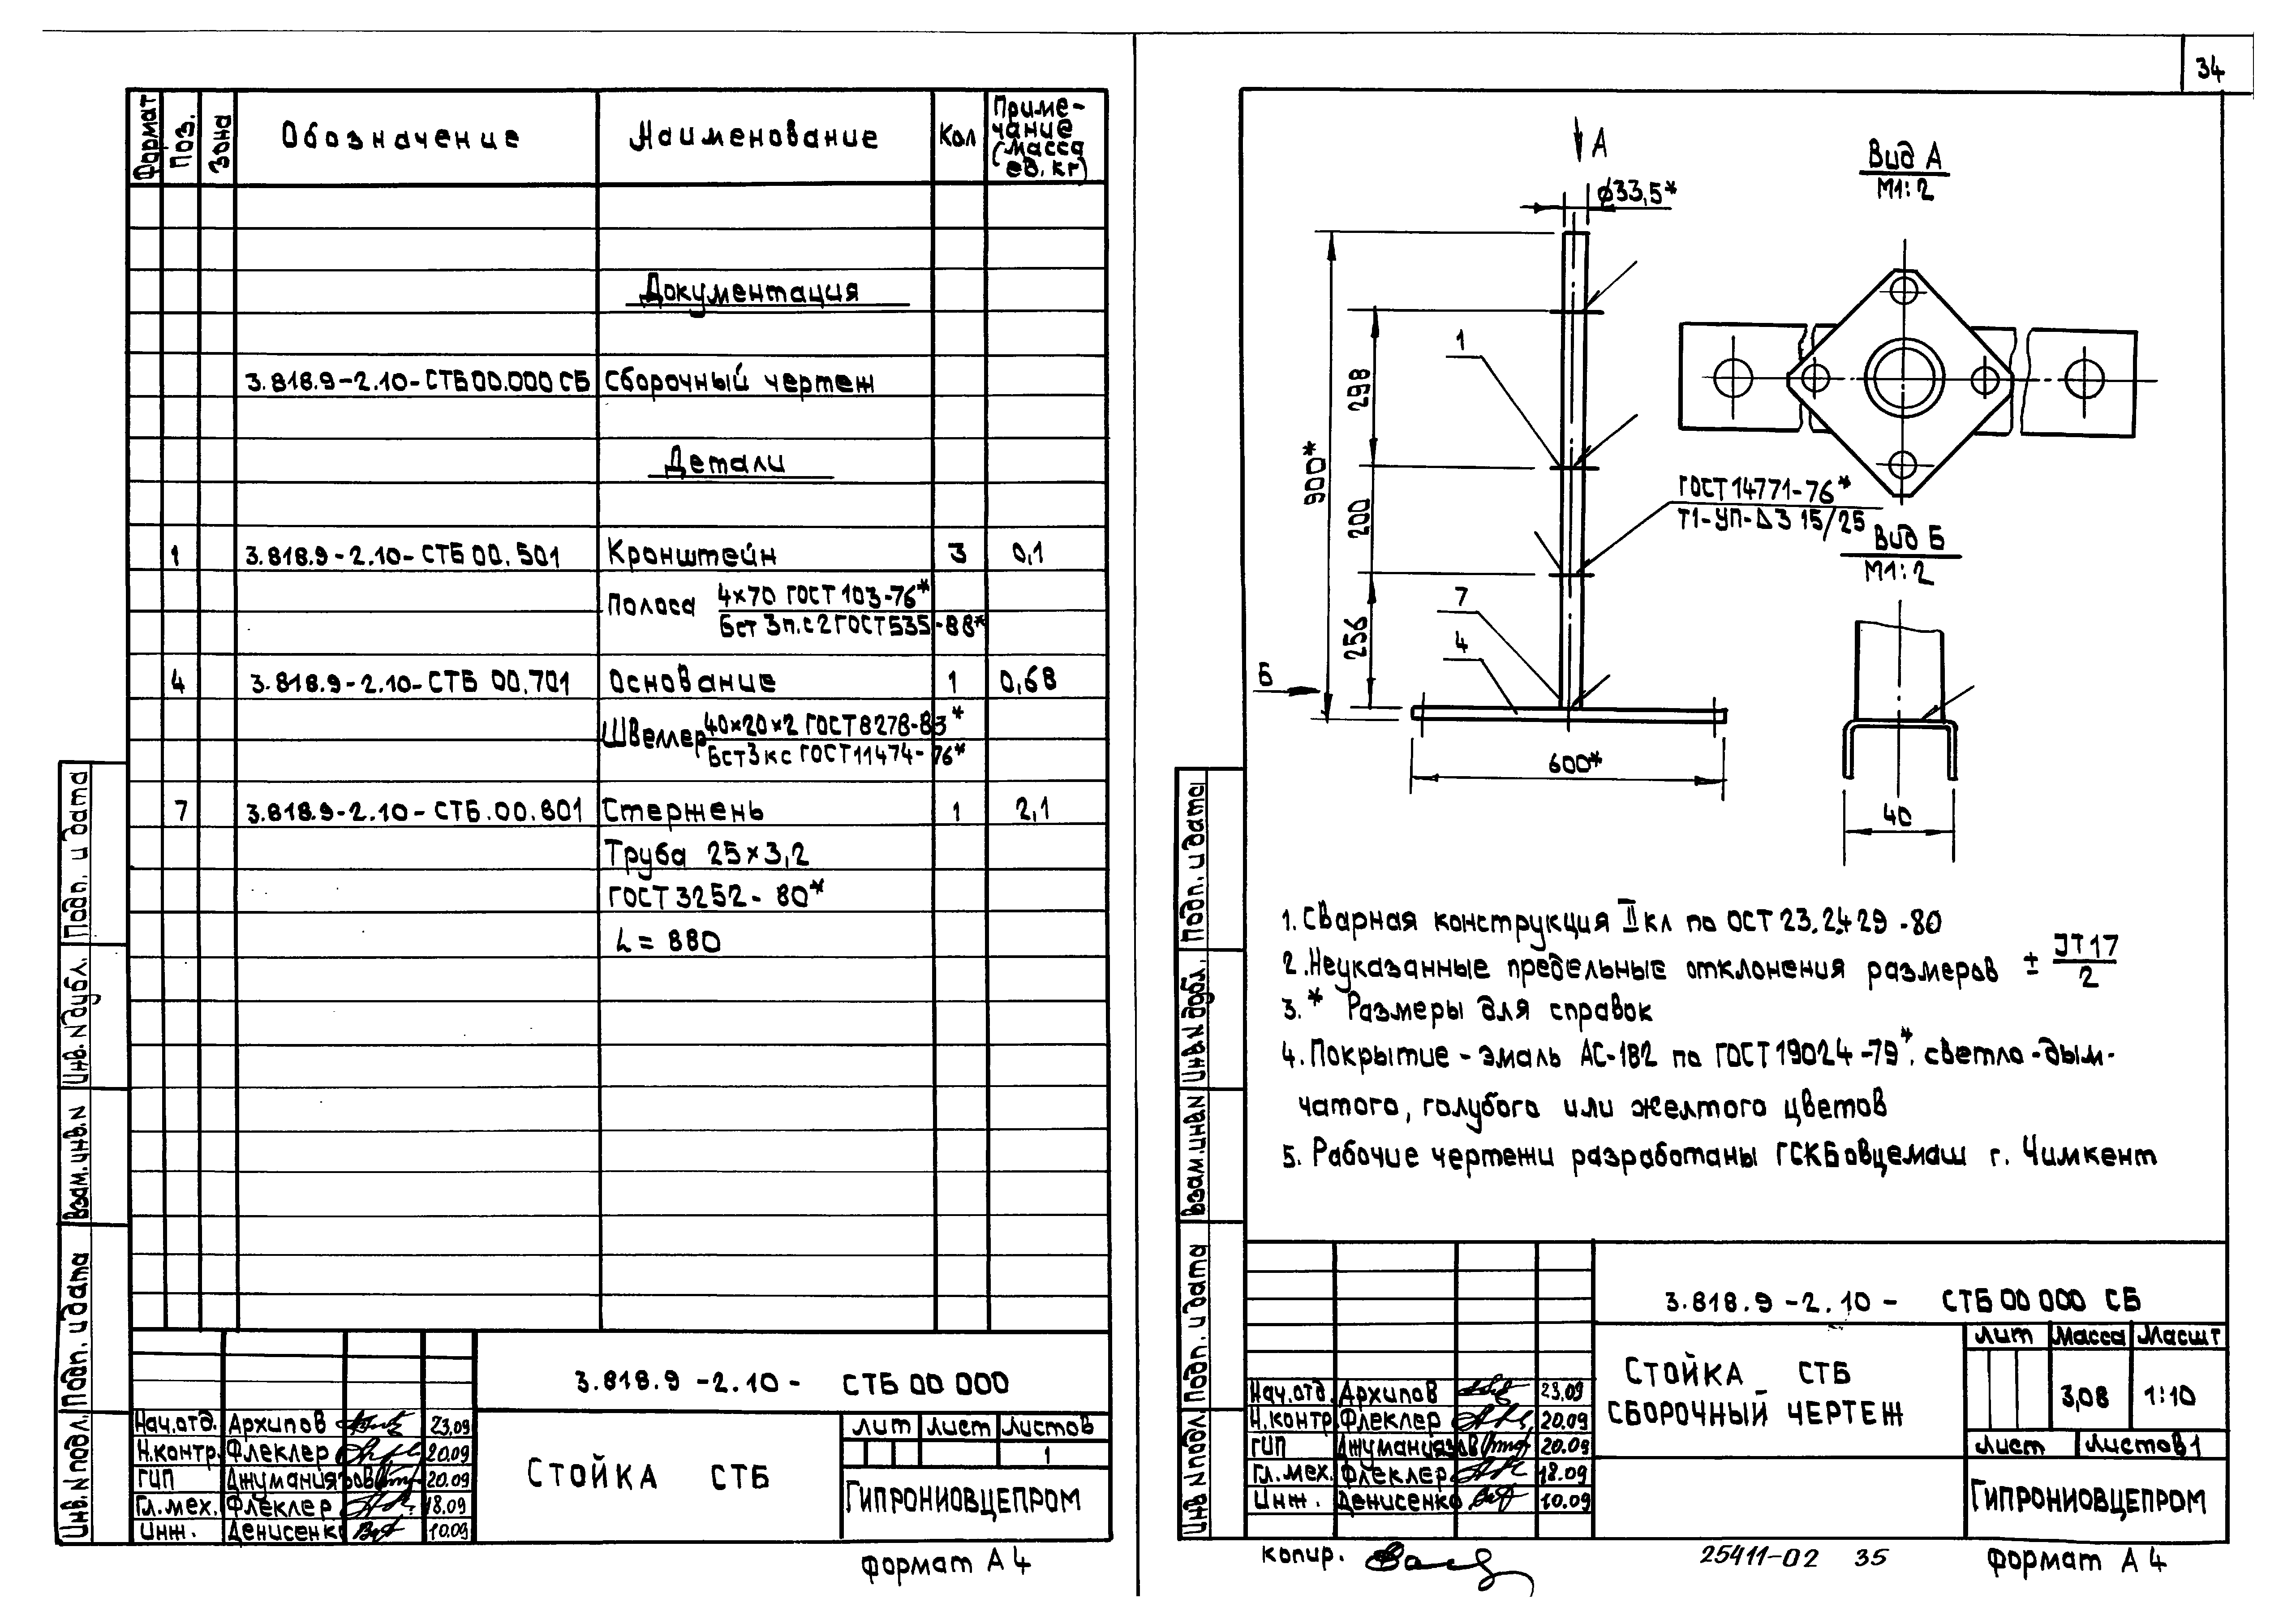 Формат
Поз.
Зона
Обозначение
Наименование
Кол
Приме-
чание
(масса
ед. кг)
Документация
3.818.9-2.10-СТБ00.000 СБ Сборочный чертеж
Детали
1 3.818.9-2.10-СТБ 00.501 Кронштейн 3 0,1
Полоса 4×70 ГОСТ 103-76*
Бст 3п.с2 ГОСТ 535-88*
4 3.818.9-2.10-СТБ 00.701 Основание 1 0,68
Швеллер 40×20×2 ГОСТ 8278-83*
Бст3кс ГОСТ 11474-76*
7 3.818.9-2.10-СТБ.00.801 Стержень 1 2,1
Труба 25×3,2
ГОСТ 3252-80*
L = 880
Подп. и дата
Инв. N дубл.
Взам. инв. N
Подп. и дата
Инв. N подл.
3.818.9-2.10- СТБ 00 000
Нач.отд. Архипов 23.09
Н.контр. Флеклер 20.09
ГИП Джуманиязов 20.09
Гл.мех. Флеклер 18.09
Инж. Денисенко 10.09
СТОЙКА СТБ
Лит Лист Листов
1
ГИПРОНИОВЦЕПРОМ
Формат А4
34
А
Ø33,5*
Вид А
М1:2
1
298
900*
200
256
ГОСТ 14771-76*
Т1-УП-Δ3 15/25
Вид Б
М1:2
7
4
Б
600*
40
1. Сварная конструкция II кл по ОСТ 23.2.429-80
2. Неуказанные предельные отклонения размеров ± JT17
2
3.* Размеры для справок
4. Покрытие - эмаль АС-182 по ГОСТ 19024-79*. светло-дым-
чатого, голубого или желтого цветов
5. Рабочие чертежи разработаны ГСКБовцемаш г. Чимкент
Подп. и дата
Инв. N дубл.
Взам. инв. N
Подп. и дата
Инв. N подл.
3.818.9-2.10- СТБ 00 000 СБ
Нач.отд. Архипов 23.09
Н.контр. Флеклер 20.09
ГИП Джуманиязов 20.09
Гл.мех. Флеклер 18.09
Инж. Денисенко 10.09
СТОЙКА СТБ
СБОРОЧНЫЙ ЧЕРТЕЖ
Лит Масса Масшт
3,08 1:10
Лист Листов 1
ГИПРОНИОВЦЕПРОМ
копир.
25411-02 35
Формат А4